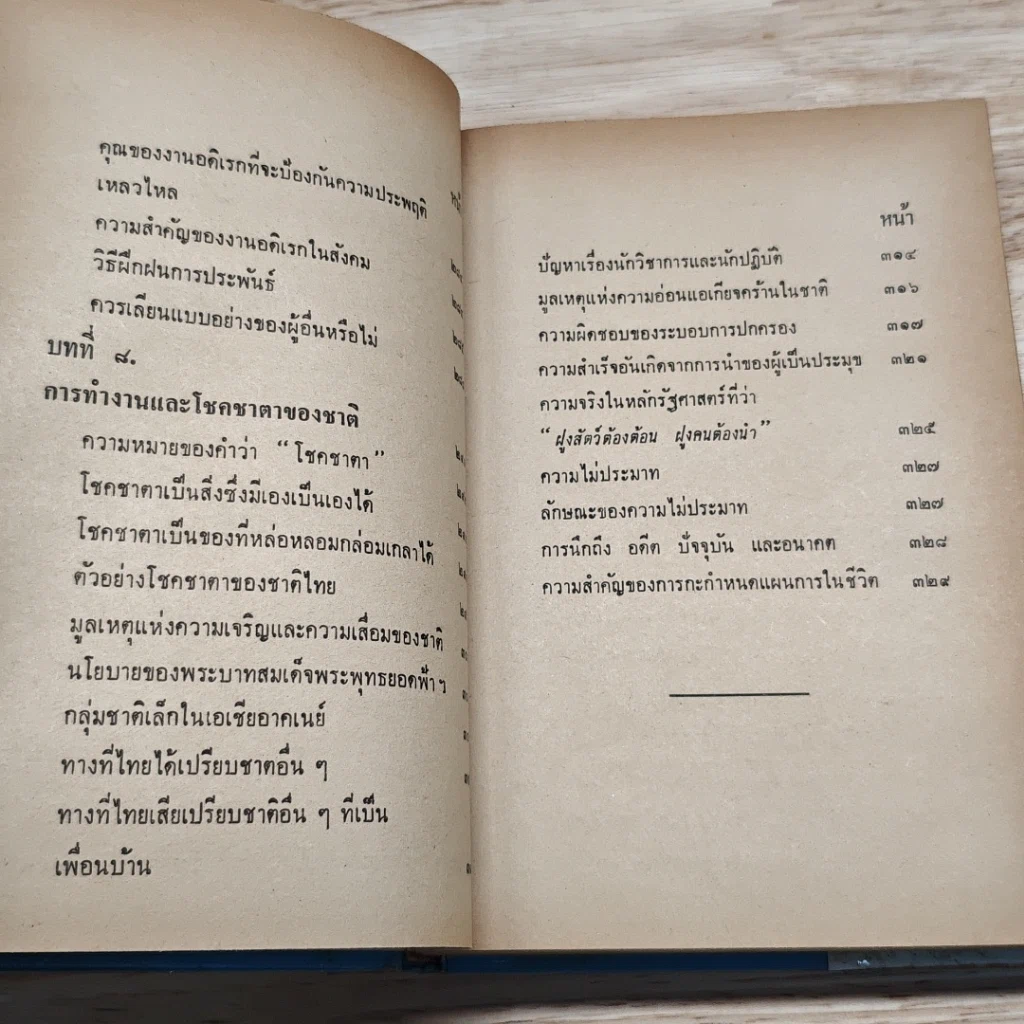 คุณของงานอดิเรกที่จะป้องกันความประพฤติ
เหลวไหล
ความสำคัญของงานอดิเรกในสังคม
วิธีฝึกฝนการประพันธ์
ควรเลียนแบบอย่างของผู้อื่นหรือไม่
บทที่ ๘.
การทำงานและโชคชาตาของชาติ
ความหมายของคำว่า “โชคชาตา”
โชคชาตาเป็นสิ่งซึ่งมีเองเป็นเองได้
โชคชาตาเป็นของที่หล่อหลอมกล่อมเกลาได้
ตัวอย่างโชคชาตาของชาติไทย
มูลเหตุแห่งความเจริญและความเสื่อมของชาติ
นโยบายของพระบาทสมเด็จพระพุทธยอดฟ้า ฯ
กลุ่มชาติเล็กในเอเชียอาคเนย์
ทางที่ไทยได้เปรียบชาตอื่น ๆ
ทางที่ไทยเสียเปรียบชาติอื่น ๆ ที่เป็น
เพื่อนบ้าน
หน้า
ปัญหาเรื่องนักวิชาการและนักปฏิบัติ ๓๑๔
มูลเหตุแห่งความอ่อนแอเกียจคร้านในชาติ ๓๑๖
ความผิดชอบของระบอบการปกครอง ๓๑๗
ความสำเร็จอันเกิดจากการนำของผู้เป็นประมุข ๓๒๑
ความจริงในหลักรัฐศาสตร์ที่ว่า
“ฝูงสัตว์ต้องต้อน ฝูงคนต้องนำ” ๓๒๕
ความไม่ประมาท ๓๒๗
ลักษณะของความไม่ประมาท ๓๒๗
การนึกถึง อดีต ปัจจุบัน และอนาคต ๓๒๘
ความสำคัญของการกะกำหนดแผนการในชีวิต ๓๒๙